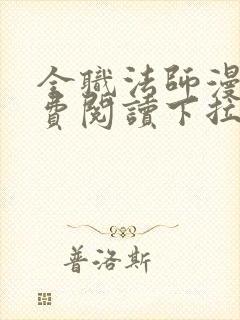 全職法師漫
費閱讀下拉
普洛斯